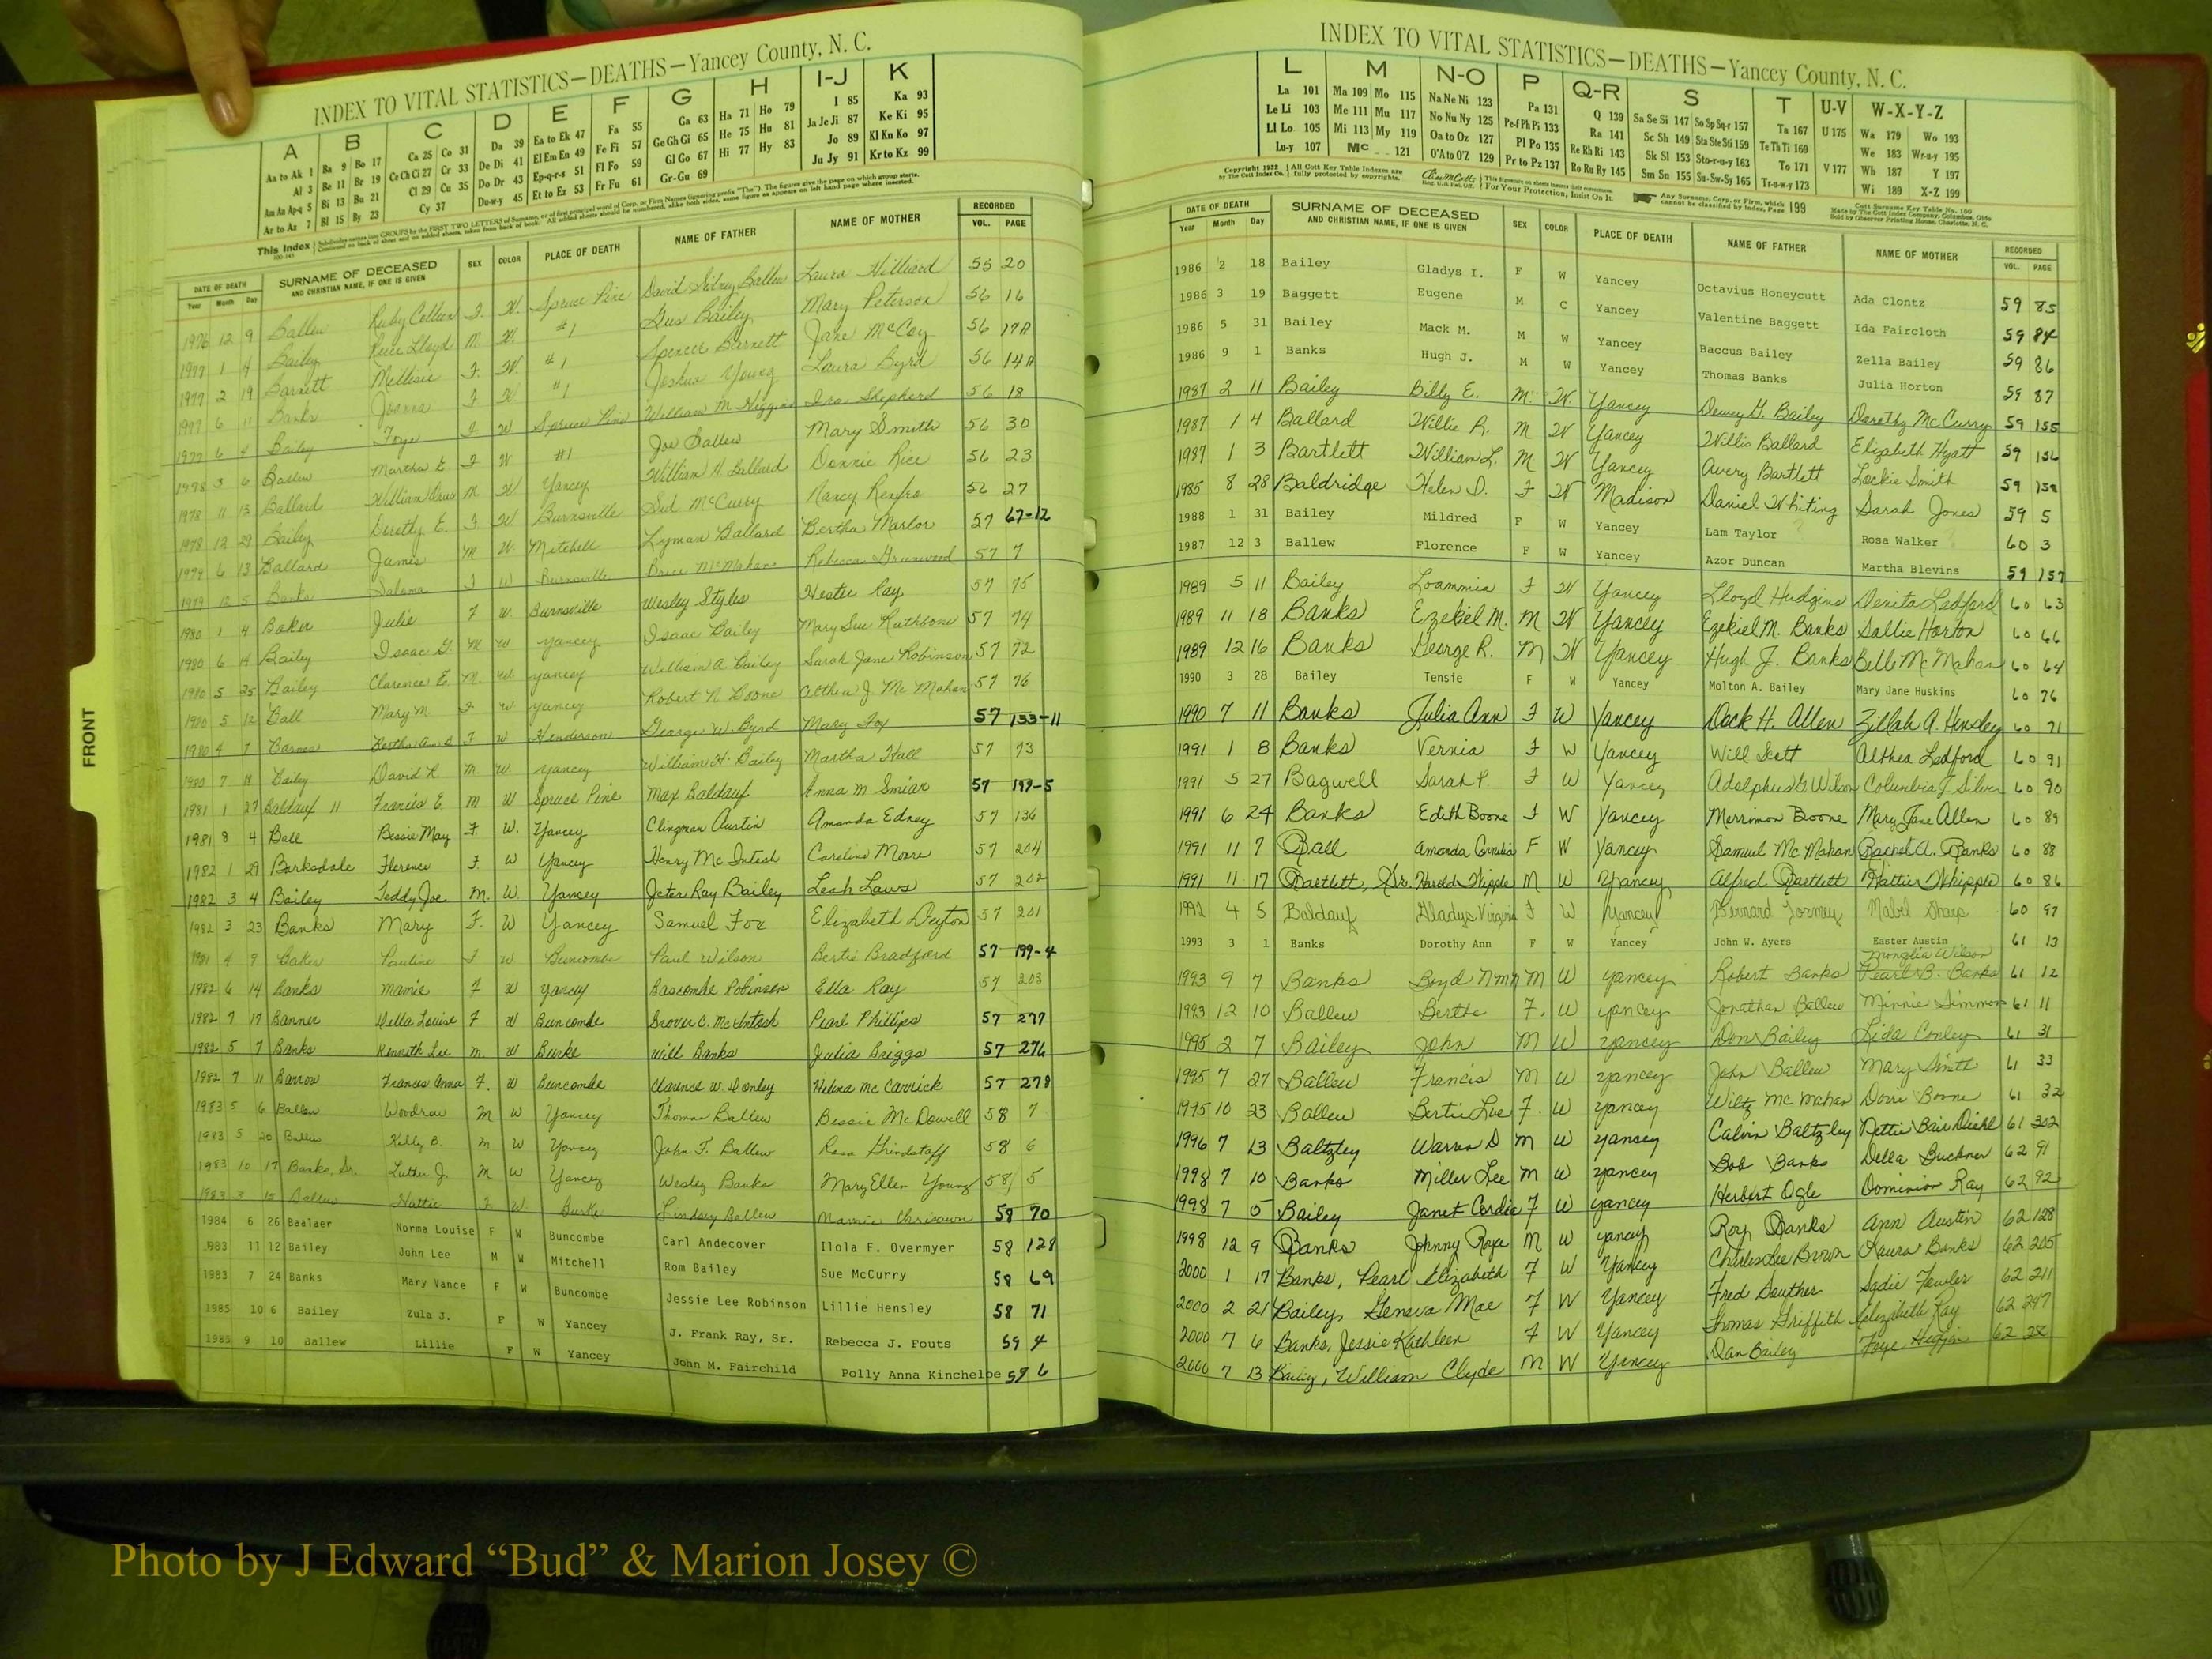 INDEX TO VITAL STATISTICS—DEATHS—Yancey County, N. C.
A B C D E F G H I-J K
Aa to Ak 1 Ba 9 Bo 17 Ca 25 Co 31 Da 39 Ea to Ek 47 Fa 55 Ga 63 Ha 71 Ho 79 I 85 Ka 93
Al 3 Be 11 Br 19 Ce Ch Ci 27 Cr 33 De Di 41 El Em En 49 Fe Fi 57 Ge Gh Gi 65 He 75 Hu 81 Ja Je Ji 87 Ke Ki 95
Am An Ap-q 5 Bi 13 Bu 21 Cl 29 Cu 35 Do Dr 43 Ep-q-r-s 51 Fl Fo 59 Gl Go 67 Hi 77 Hy 83 Jo 89 Kl Kn Ko 97
Ar to Az 7 Bl 15 By 23 Cy 37 Du-w-y 45 Et to Ez 53 Fr Fu 61 Gr-Gu 69 Ju Jy 91 Kr to Kz 99
This Index
DATE OF DEATH SURNAME OF DECEASED SEX COLOR PLACE OF DEATH NAME OF FATHER NAME OF MOTHER RECORDED
Year Month Day AND CHRISTIAN NAME, IF ONE IS GIVEN VOL. PAGE
1976 12 9 Ballew Ruby Collier F. W. Spruce Pine David Silney Ballew Laura Hilliard 55 20
1977 1 4 Bailey Reece Lloyd M. W. #1 Gus Bailey Mary Peterson 56 16
1977 2 19 Barnett Mellisie F. W. #1 Spencer Barnett Jane McCoy 56 17A
1977 6 11 Banks Joanna F W #1 Joshua Young Laura Byrd 56 14A
1977 6 4 Bailey Faye F W Spruce Pine William M Higgins Ira Shepherd 56 18
1978 3 6 Ballew Martha E. F W #1 Joe Ballew Mary Smith 56 30
1978 11 13 Ballard William M W Yancey William H Ballard Donnie Rice 56 23
1978 12 29 Bailey Dorothy E. F W Burnsville Sid McCurry Nancy Renfro 56 27
1979 6 13 Ballard James M W. Mitchell Lyman Ballard Bertha Marlor 57 67-12
1979 12 5 Banks Saloma F W Burnsville Brice McMahan Rebecca Greenwood 57 7
1980 1 4 Baker Julie F W. Burnsville Wesley Styles Hester Ray 57 75
1980 6 14 Bailey Isaac G. M W Yancey Isaac Bailey Mary Sue Rathbone 57 74
1980 5 25 Bailey Clarence E. M. W Yancey William A Bailey Sarah Jane Robinson 57 72
1980 5 12 Ball Mary M. F W Yancey Robert N Boone Althea J. McMahan 57 76
1980 4 7 Barnes F W Henderson George W. Byrd Mary Fox 57 133-11
1980 7 18 Bailey David R. M W. Yancey William H. Bailey Martha Hall 57 73
1981 1 27 Baldauf II Francis E. M W Spruce Pine Max Baldauf Anna M Smiar 57 199-5
1981 8 4 Ball Bessie May F. W. Yancey Clingman Austin Amanda Edney 57 136
1982 1 29 Barksdale Florence F. W Yancey Henry McIntosh Caroline Moore 57 204
1982 3 4 Bailey Teddy Joe M. W. Yancey Jeter Ray Bailey Leah Laws 57 202
1982 3 23 Banks Mary F. W Yancey Samuel Fox Elizabeth Deyton 57 201
1981 4 9 Baker Pauline F W Buncombe Paul Wilson Bertie Bradford 57 199-4
1982 6 14 Banks Mamie F W Yancey Bascombe Robinson Ella Ray 57 203
1982 7 17 Banner Della Louise F W Buncombe Grover C. McIntosh Pearl Phillips 57 277
1982 5 7 Banks Kenneth Lee M. W Burke Will Banks Julia Briggs 57 276
1982 7 11 Barron Frances Anna F. W Buncombe Clarence W. Donley Helena McCarrick 57 278
1983 5 6 Ballew Woodrow M W Yancey Thomas Ballew Bessie McDowell 58 7
1983 5 20 Ballew Kelly B. M W Yancey John F. Ballew Rosa Grindstaff 58 6
1983 10 17 Banks, Sr. Luther J. M W Yancey Wesley Banks Mary Ellen Young 58 5
1983 3 15 Ballew Hattie F W Burke Lindsey Ballew Mamie Chrisawn 58 70
1984 6 26 Baalaer Norma Louise F W Buncombe Carl Andecover Ilola F. Overmyer 58 128
1983 11 12 Bailey John Lee M W Mitchell Rom Bailey Sue McCurry 58 69
1983 7 24 Banks Mary Vance F W Buncombe Jessie Lee Robinson Lillie Hensley 58 71
1985 10 6 Bailey Zula J. F W Yancey J. Frank Ray, Sr. Rebecca J. Fouts 59 4
1985 9 10 Ballew Lillie F W Yancey John M. Fairchild Polly Anna Kincheloe 59 6
FRONT
INDEX TO VITAL STATISTICS—DEATHS—Yancey County, N. C.
L M N-O P Q-R S T U-V W-X-Y-Z
La 101 Ma 109 Mo 115 Na Ne Ni 123 Pa 131 Q 139 Sa Se Si 147 So Sp Sq-r 157 Ta 167 U 175 Wa 179 Wo 193
Le Li 103 Me 111 Mu 117 No Nu Ny 125 Pe-f Ph Pi 133 Ra 141 Sc Sh 149 Sta Ste Sti 159 Te Th Ti 169 We 183 Wr-u-y 195
Ll Lo 105 Mi 113 My 119 Oa to Oz 127 Pl Po 135 Re Rh Ri 143 Sk Sl 153 Sto-r-u-y 163 To 171 V 177 Wh 187 Y 197
Lu-y 107 Mc 121 O'A to O'Z 129 Pr to Pz 137 Ro Ru Ry 145 Sm Sn 155 Su-Sw-Sy 165 Tr-u-w-y 173 Wi 189 X-Z 199
Copyright 1932 All Cott Key Table Indexes are For Your Protection, Insist On It. Any Surname, Corp. or Firm, which Cott Surname Key Table No. 100
by The Cott Index Co. fully protected by copyrights. cannot be classified by Index, Page 199 Made by The Cott Index Company, Columbus, Ohio
Sold by Observer Printing House, Charlotte, N. C.
DATE OF DEATH SURNAME OF DECEASED SEX COLOR PLACE OF DEATH NAME OF FATHER NAME OF MOTHER RECORDED
Year Month Day AND CHRISTIAN NAME, IF ONE IS GIVEN VOL. PAGE
1986 2 18 Bailey Gladys I. F W Yancey Octavius Honeycutt Ada Clontz 59 85
1986 3 19 Baggett Eugene M C Yancey Valentine Baggett Ida Faircloth 59 84
1986 5 31 Bailey Mack M. M W Yancey Baccus Bailey Zella Bailey 59 86
1986 9 1 Banks Hugh J. M W Yancey Thomas Banks Julia Horton 59 87
1987 2 11 Bailey Billy E. M. W. Yancey Dewey H. Bailey Dorothy McCurry 59 155
1987 1 4 Ballard Willie R. M W Yancey Willis Ballard Elizabeth Hyatt 59 156
1987 1 3 Bartlett William L. M W Yancey Avery Bartlett Lockie Smith 59 158
1985 8 28 Baldridge Helen D. F W Madison Daniel Whiting Sarah Jones 59 5
1988 1 31 Bailey Mildred F W Yancey Lam Taylor Rosa Walker 60 3
1987 12 3 Ballew Florence F W Yancey Azor Duncan Martha Blevins 59 157
1989 5 11 Bailey Loammia F W Yancey Lloyd Hudgins Denita Ledford 60 63
1989 11 18 Banks Ezekiel M. M W Yancey Ezekiel M. Banks Sallie Horton 60 66
1989 12 16 Banks George R. M W Yancey Hugh J. Banks Belle McMahan 60 64
1990 3 28 Bailey Tensie F W Yancey Molton A. Bailey Mary Jane Huskins 60 76
1990 7 11 Banks Julia Ann F W Yancey Dock H. Allen Zillah A. Hensley 60 71
1991 1 8 Banks Vernia F W Yancey Will Scott Althea Ledford 60 91
1991 5 27 Bagwell Sarah P. F W Yancey Adolphus G. Wilson Columbia J. Silver 60 90
1991 6 24 Banks Edith Boone F W Yancey Merrimon Boone Mary Jane Allen 60 89
1991 11 7 Ball Amanda Cornelia F W Yancey Samuel McMahan Rachel A. Banks 60 88
1991 11 17 Bartlett, Sr. Harold Whipple M W Yancey Alfred Bartlett Hattie Whipple 60 86
1992 4 5 Baldauf Gladys Virginia F W Yancey Bernard Tormey Mabel Sharp 60 97
1993 3 1 Banks Dorothy Ann F W Yancey John W. Ayers Easter Austin 61 13
1993 9 7 Banks Boyd Nmn M W Yancey Robert Banks Monglia Wilson Pearl B. Banks 61 12
1993 12 10 Ballew Bertha F. W Yancey Jonathan Ballew Minnie Simmons 61 11
1995 2 7 Bailey John M W Yancey Don Bailey Lida Conley 61 31
1995 7 27 Ballew Francis M W Yancey John Ballew Mary Smith 61 33
1995 10 23 Ballew Bertie Lee F. W Yancey Wiltz McMahan Dorie Boone 61 32
1996 7 13 Baltzley Warren D M W Yancey Calvin Baltzley Nettie Bair Diehl 61 302
1998 7 10 Banks Miller Lee M W Yancey Bob Banks Della Buckner 62 91
1998 7 5 Bailey Janet Cordie F W Yancey Herbert Ogle Dominion Ray 62 92
1998 12 9 Banks Johnny Roye M W Yancey Roy Banks Ann Austin 62 128
2000 1 17 Banks, Pearl Elizabeth F W Yancey Charles Lee Brown Laura Banks 62 205
2000 2 21 Bailey, Geneva Mae F W Yancey Fred Souther Sadie Fowler 62 211
2000 7 6 Banks, Jessie Kathleen F W Yancey Thomas Griffith Elizabeth Ray 62 247
2000 7 13 Bailey, William Clyde M W Yancey Dan Bailey Faye 62
Photo by J Edward “Bud” & Marion Josey ©